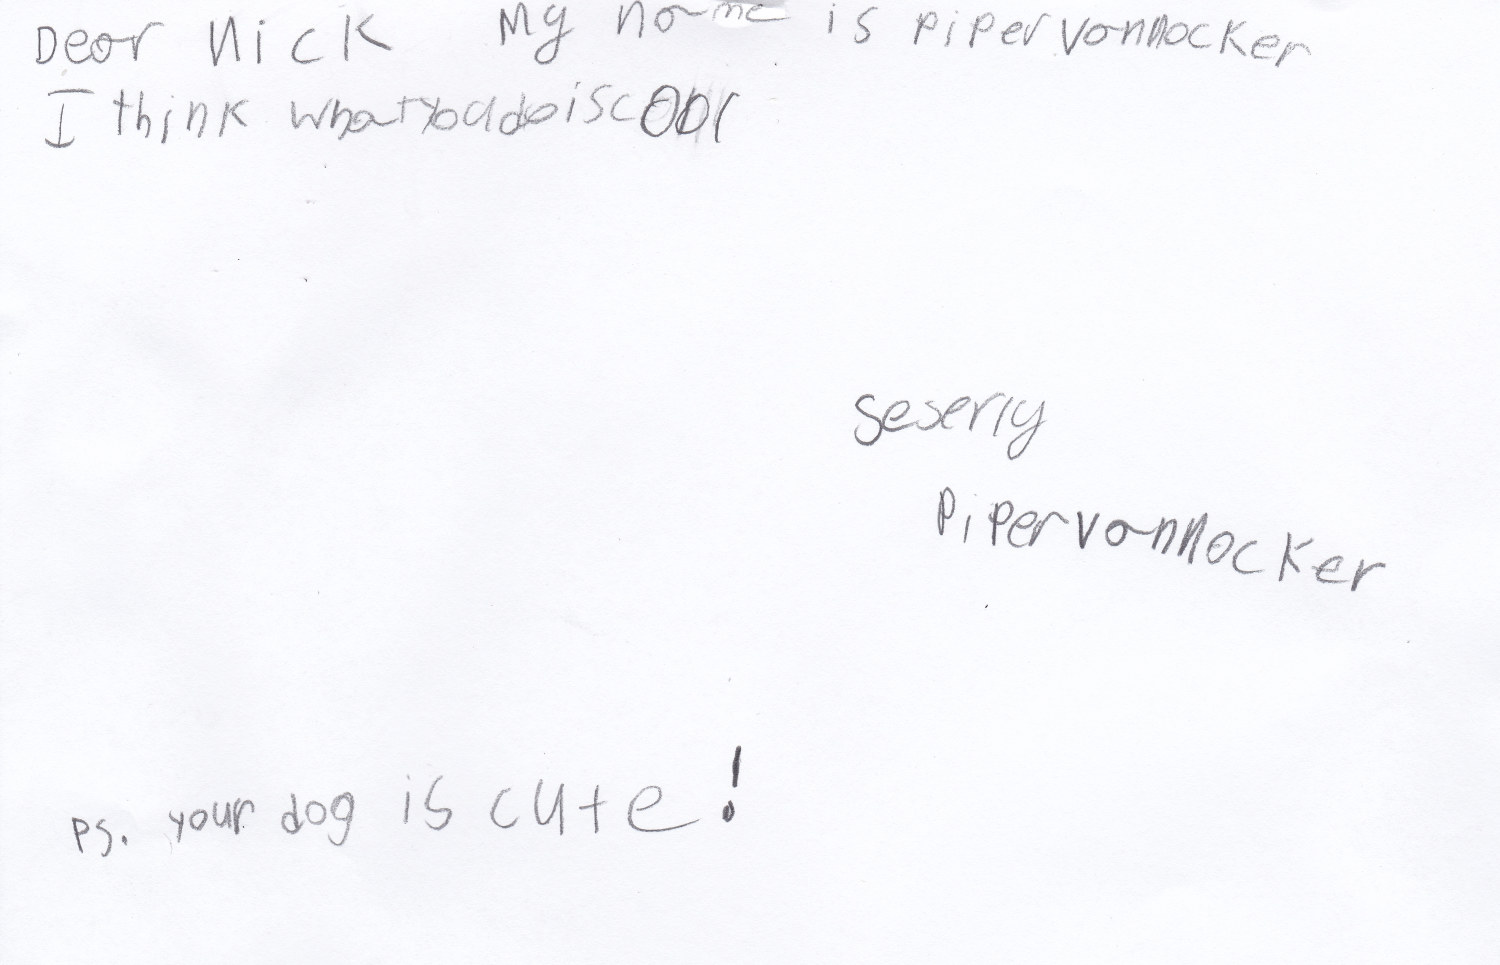 Dear Nick My name is Piper Vannocker
I think whatyoudoiscool
seserly
Piper Vannocker
Ps. your dog is cute!